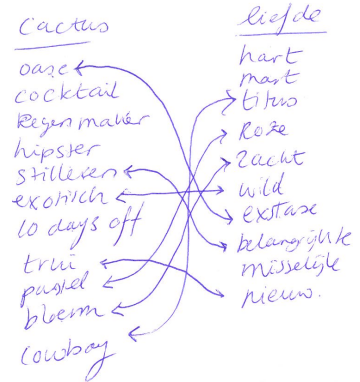 cactus
oase
cocktail
Regenmaker
hipster
stilleven
exotisch
10 days off
trui
pastel
bloem
cowboy
liefde
hart
titus
Roze
zacht
wild
extase
belangrijkste
misselijk
nieuw.